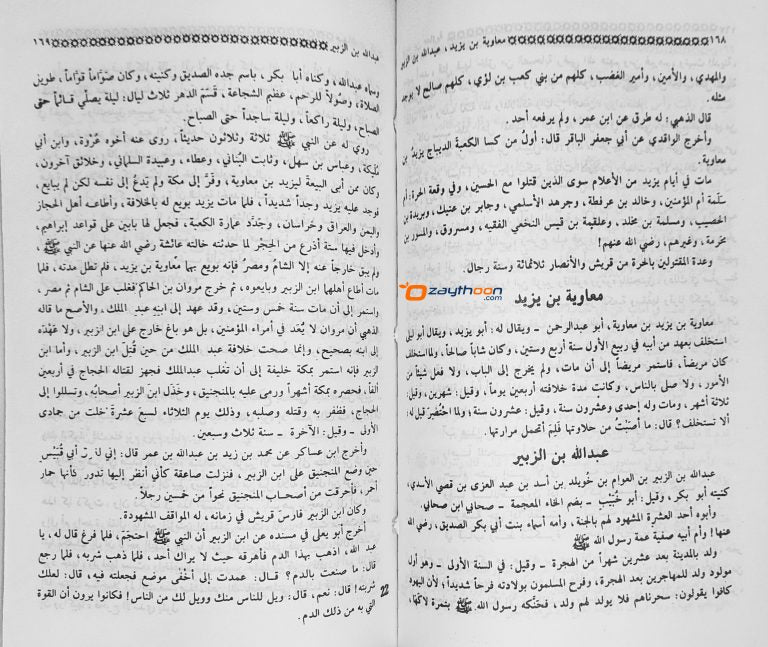 ١٦٨ معاوية بن يزيد ، عبدالله بن الزبير
والمهدي ، والأمين ، وأمير الغضب ، كلهم من بني كعب بن لؤي ، كلهم صالح لا يوجد
مثله .
قال الذهبي : له طرق عن ابن عمر ، ولم يرفعه أحد .
وأخرج الواقدي عن أبي جعفر الباقر قال : أول من كسا الكعبة الديباج يزيد بن
معاوية .
مات في أيام يزيد من الأعلام سوى الذين قتلوا مع الحسين ، وفي وقعة الحرة : أم
سلمة أم المؤمنين ، وخالد بن عرفطة ، وجرهد الأسلمي ، وجابر بن عتيك ، وبريدة بن
الحصيب ، ومسلمة بن مخلد ، وعلقمة بن قيس النخعي الفقيه ، ومسروق ، والمسور بن
مخرمة ، وغيرهم ، رضي الله عنهم !
وعدة المقتولين بالحرة من قريش والأنصار ثلاثمائة وستة رجال .
Ozaythoon
.com
معاوية بن يزيد
معاوية بن يزيد بن معاوية ، أبو عبدالرحمن ـ ويقال له : أبو يزيد ، ويقال أبو ليلى
استخلف بعهد من أبيه في ربيع الأول سنة أربع وستين ، وكان شاباً صالحاً ، ولما استخلف
كان مريضاً ، فاستمر مريضاً إلى أن مات ، ولم يخرج إلى الباب ، ولا فعل شيئاً من
الأمور ، ولا صلى بالناس ، وكانت مدة خلافته أربعين يوماً ، وقيل : شهرين ، وقيل :
ثلاثة أشهر ، ومات وله إحدى وعشرون سنة ، وقيل : عشرون سنة ؛ ولما احتُضِرَ قيل له :
ألا تستخلف ؟ قال : ما أصَبْتُ من حلاوتها فَلِمَ أتحمل مرارتها .
عبدالله بن الزبير
عبدالله بن الزبير بن العوام بن خُويلد بن أسد بن عبد العزى بن قصي الأسدي ،
كنيته أبو بكر ، وقيل : أبو خُبَيْب ـ بضم الخاء المعجمة ـ صحابي ابن صحابي .
وأبوه أحد العشرة المشهود لهم بالجنة ، وأمه أسماء بنت أبي بكر الصديق ، رضي الله
عنها ! وأم أبيه صفية عمة رسول الله ﷺ
ولد بالمدينة بعد عشرين شهراً من الهجرة ـ وقيل : في السنة الأولى ـ وهو أول
مولود ولد للمهاجرين بعد الهجرة ، وفرح المسلمون بولادته فرحاً شديداً ؛ لأن اليهود
كانوا يقولون : سحرناهم فلا يولد لهم ولد ، فحنَّكه رسول الله ﷺ بتمرة لاكها ،
عبدالله بن الزبير ١٦٩
وسماه عبدالله ، وكناه أبا بكر ، باسم جده الصديق وكنيته ، وكان صوَّاماً قوَّاماً ، طويل
الصلاة ، وصُولاً للرحم ، عظيم الشجاعة ، قسَّم الدهر ثلاث ليال : ليلة يصلّي قائماً حتى
الصباح ، وليلة راكعاً ، وليلة ساجداً حتى الصباح .
روي له عن النبي ﷺ ثلاثة وثلاثون حديثاً ، روى عنه أخوه عُرْوَة ، وابن أبي
مُليكة ، وعباس بن سهل ، وثابت البُناني ، وعطاء ، وعبيدة السلماني ، وخلائق آخرون ،
وكان ممن أبى البيعة ليزيد بن معاوية ، وفَرَّ إلى مكة ولم يَدْعُ إلى نفسه لكن لم يبايع ،
فوجد عليه يزيد وجداً شديداً ، فلما مات يزيد بويع له بالخلافة ، وأطاعه أهل الحجاز
واليمن والعراق وخراسان ، وجَدَّد عمارة الكعبة ، فجعل لها بابين على قواعد إبراهيم ،
وأدخل فيها ستة أذرع من الحِجْر لما حدثته خالته عائشة رضي الله عنها عن النبي ﷺ ،
ولم يبق خارجاً عنه إلا الشامُ ومصرُ فإنه بويع بهما معاوية بن يزيد ، فلم تطل مدته ، فلما
مات أطاع أهلهما ابن الزبير وبايعوه ، ثم خرج مروان بن الحاكم فغلب على الشام ثم مصر ،
واستمر إلى أن مات سنة خمس وستين ، وقد عهد إلى ابنه عبد الملك ، والأصح ما قاله
الذهبي أن مروان لا يُعَد في أمراء المؤمنين ، بل هو باغ خارج على ابن الزبير ، ولا عَهْدُه
إلى ابنه بصحيح ، وإنما صحت خلافة عبد الملك من حين قُتلَ ابن الزبير ، وأما ابن
الزبير فإنه استمر بمكة خليفة إلى أن تغلب عبدالملك فجهز لقتاله الحجاج في أربعين
ألفاً ، فحصره بمكة أشهراً ورمى عليه بالمنجنيق ، وخَذَل ابنَ الزبير أصحابُه ، وتسللوا إلى
الحجاج ، فظفر به وقتله وصلبه ، وذلك يوم الثلاثاء لسبعَ عشرةَ خلت من جمادى
الأولى ـ وقيل : الآخرة ـ سنة ثلاث وسبعين .
وأخرج ابن عساكر عن محمد بن زيد بن عبدالله بن عمر قال : إني لفوق أبي قُبَيْس
حين وضع المنجنيق على ابن الزبير ، فنزلت صاعقة كأني أنظر إليها تدور كأنها حمار
أحمر ، فأحرقت من أصحاب المنجنيق نحواً من خمسين رجلاً .
وكان ابن الزبير فارسَ قريش في زمانه ، له المواقف المشهودة .
أخرج أبو يعلى في مسنده عن ابن الزبير أن النبي ﷺ احتجمَ ، فلما فرغ قال له : يا
عبد الله ، اذهب بهذا الدم فأهرقه حيث لا يراك أحد ، فلما ذهب شربه ، فلما رجع
قال : ما صنعت بالدم ؟ قال : عمدت إلى أخْفَى موضع فجعلته فيه ، قال : لعلك
شربته ! قال : نعم ، قال : ويل للناس منك وويل لك من الناس ! فكانوا يرون أن القوة
التي به من ذلك الدم .